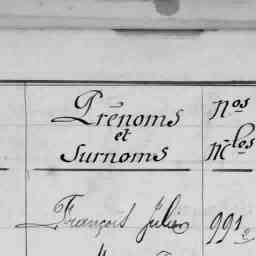 Prénoms
et
Surnoms
Nos
Mles
François Julien
991